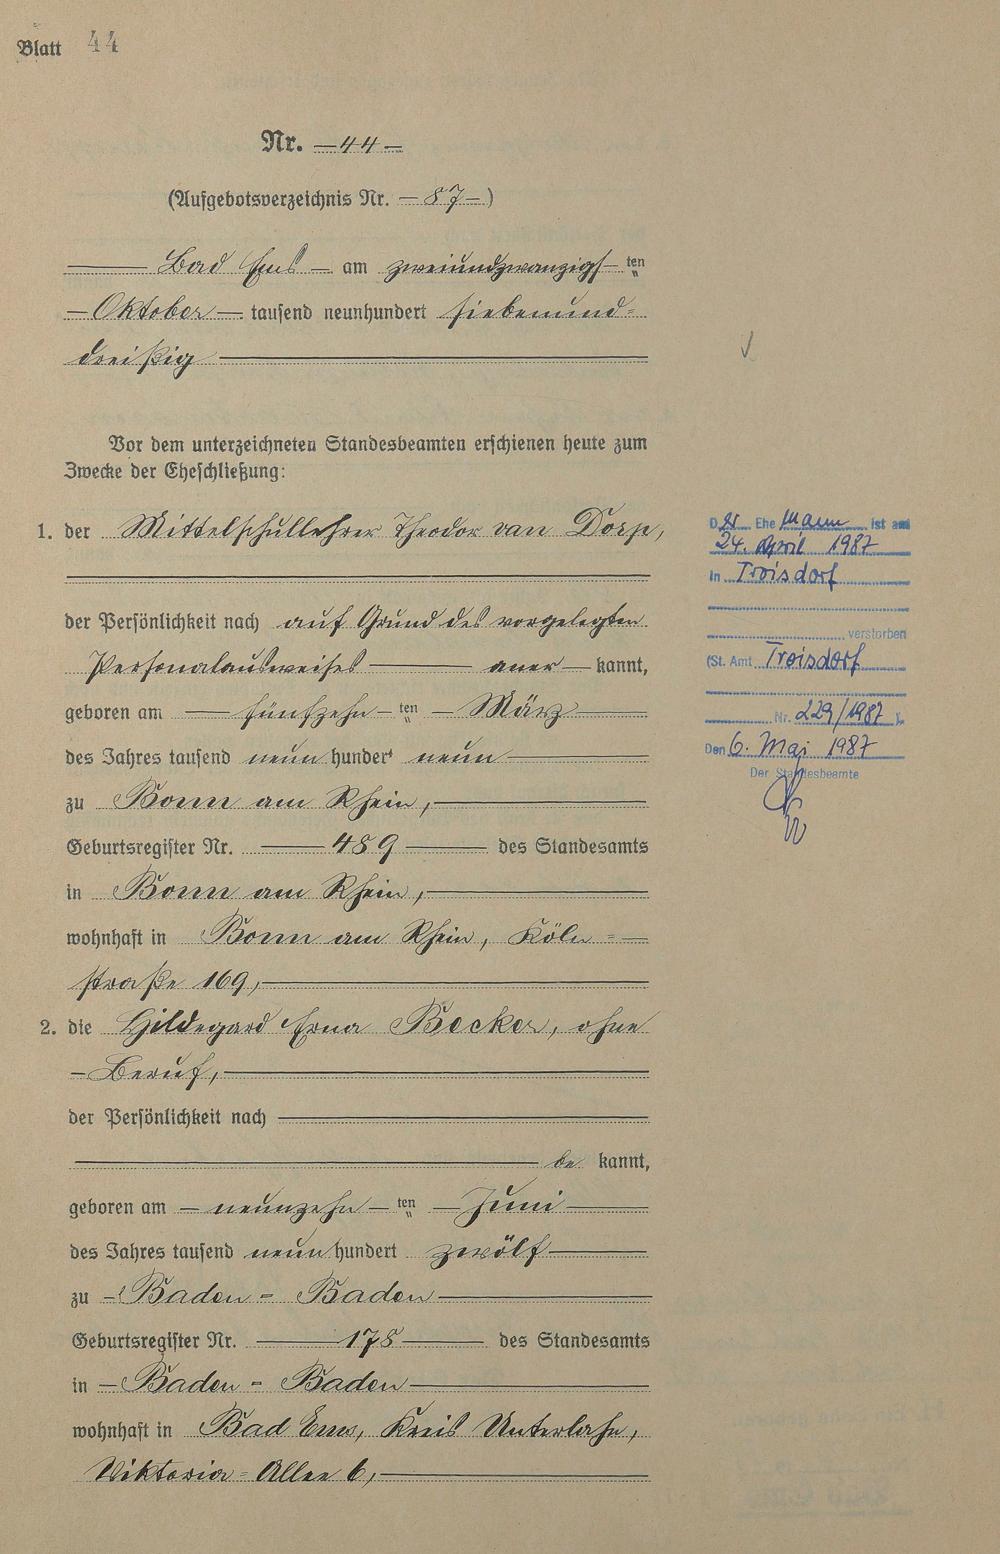 Blatt 44
Nr. —44—
(Aufgebotsverzeichnis Nr. —87—)
Bad Ems — am zweiundzwanzigs— ten
— Oktober — tausend neunhundert siebenund=
dreißig
Vor dem unterzeichneten Standesbeamten erschienen heute zum
Zwecke der Eheschließung:
1. der Mittelschullehrer Theodor van Dorp,
der Persönlichkeit nach auf Grund des vorgelegten
Personalausweises — aner — kannt,
geboren am — fünfzehn — ten — März
des Jahres tausend neun hundert neun
zu Bonn am Rhein,
Geburtsregister Nr. — 489 — des Standesamts
in Bonn am Rhein,
wohnhaft in Bonn am Rhein, Köln=
straße 169,
2. die Hildegard Erna Becker, ohne
— Beruf,
der Persönlichkeit nach
be kannt,
geboren am — neunzehn — ten — Juni
des Jahres tausend neun hundert zwölf
zu — Baden = Baden
Geburtsregister Nr. — 178 — des Standesamts
in — Baden = Baden
wohnhaft in Bad Ems, Kreis Unterlahn,
Viktoria = Allee 6,
Der Ehe mann ist am
24. April 1987
in Troisdorf
verstorben
(St. Amt Troisdorf
Nr. 229/1987 ).
Den 6. Mai 1987
Der Standesbeamte